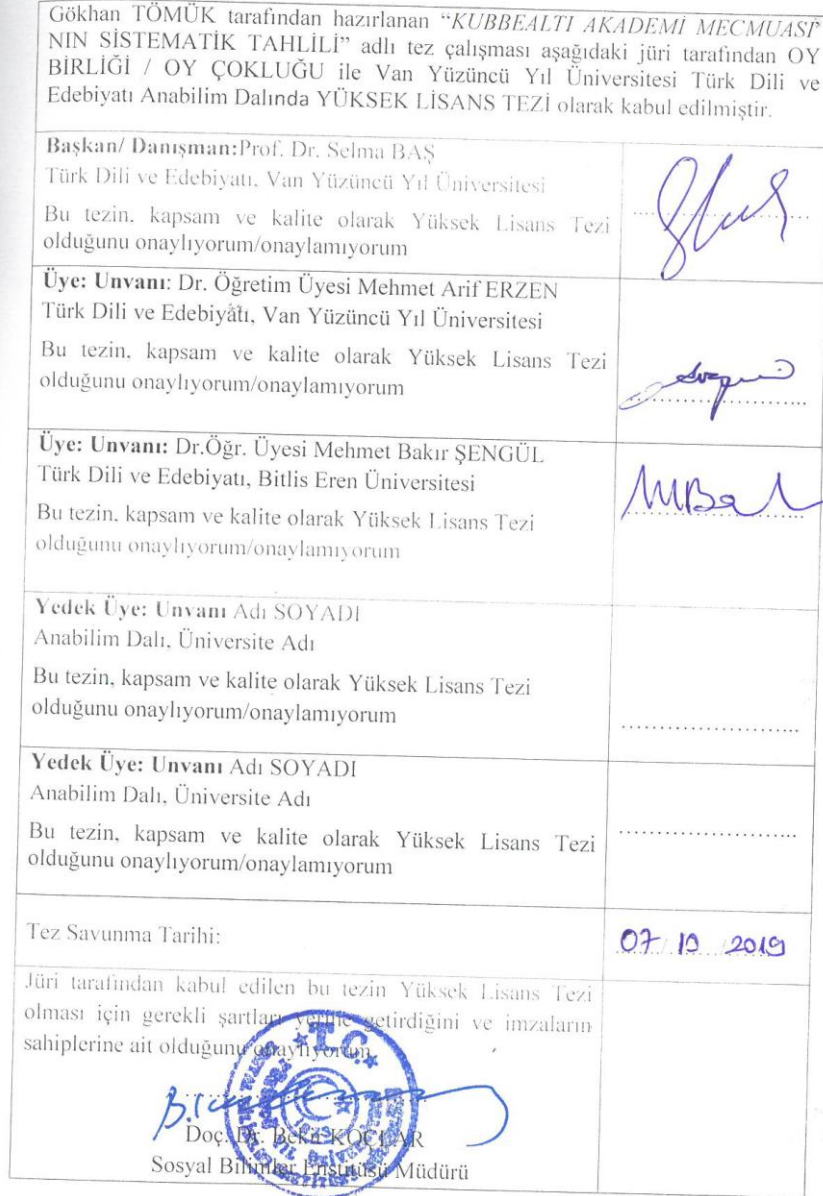 Gökhan TÖMÜK tarafından hazırlanan “KUBBEALTI AKADEMİ MECMUASI’
NIN SİSTEMATİK TAHLİLİ” adlı tez çalışması aşağıdaki jüri tarafından OY
BİRLİĞİ / OY ÇOKLUĞU ile Van Yüzüncü Yıl Üniversitesi Türk Dili ve
Edebiyatı Anabilim Dalında YÜKSEK LİSANS TEZİ olarak kabul edilmiştir.
Başkan/ Danışman:Prof. Dr. Selma BAŞ
Türk Dili ve Edebiyatı, Van Yüzüncü Yıl Üniversitesi
Bu tezin, kapsam ve kalite olarak Yüksek Lisans Tezi
olduğunu onaylıyorum/onaylamıyorum
Üye: Unvanı: Dr. Öğretim Üyesi Mehmet Arif ERZEN
Türk Dili ve Edebiyatı, Van Yüzüncü Yıl Üniversitesi
Bu tezin, kapsam ve kalite olarak Yüksek Lisans Tezi
olduğunu onaylıyorum/onaylamıyorum
Üye: Unvanı: Dr.Öğr. Üyesi Mehmet Bakır ŞENGÜL
Türk Dili ve Edebiyatı, Bitlis Eren Üniversitesi
Bu tezin, kapsam ve kalite olarak Yüksek Lisans Tezi
olduğunu onaylıyorum/onaylamıyorum
Yedek Üye: Unvanı Adı SOYADI
Anabilim Dalı, Üniversite Adı
Bu tezin, kapsam ve kalite olarak Yüksek Lisans Tezi
olduğunu onaylıyorum/onaylamıyorum
Yedek Üye: Unvanı Adı SOYADI
Anabilim Dalı, Üniversite Adı
Bu tezin, kapsam ve kalite olarak Yüksek Lisans Tezi
olduğunu onaylıyorum/onaylamıyorum
Tez Savunma Tarihi: 07/10/2019
Jüri tarafından kabul edilen bu tezin Yüksek Lisans Tezi
olması için gerekli şartları yerine getirdiğini ve imzaların
sahiplerine ait olduğunu onaylıyorum
T.C.
Doç. Dr. Bekir KOÇLAR
Sosyal Bilimler Enstitüsü Müdürü